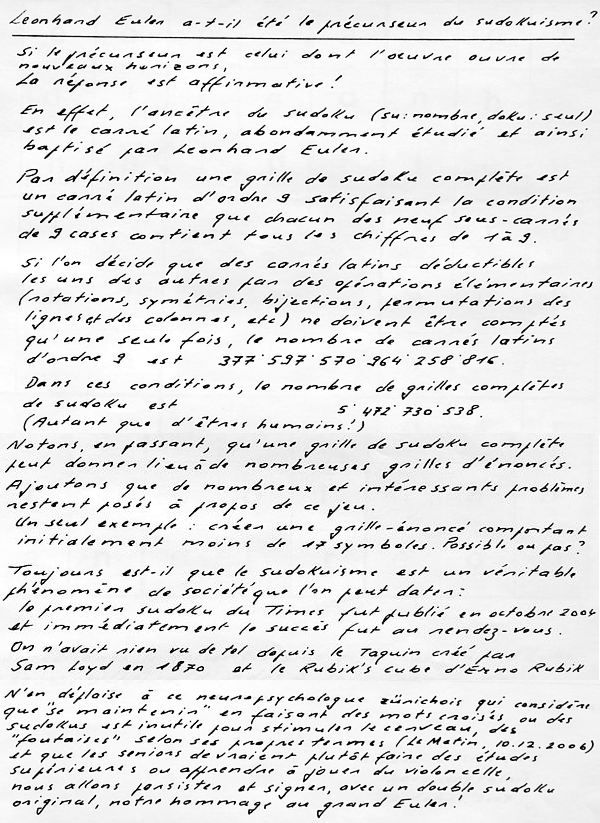 Leonhard Euler a-t-il été le précurseur du sudokuisme?
Si le précurseur est celui dont l'oeuvre ouvre de
nouveaux horizons,
La réponse est affirmative!
En effet, l'ancêtre du sudoku (su: nombre, doku: seul)
est le carré latin, abondamment étudié et ainsi
baptisé par Leonhard Euler.
Par définition une grille de sudoku complète est
un carré latin d'ordre 9 satisfaisant la condition
supplémentaire que chacun des neuf sous-carrés
de 9 cases contient tous les chiffres de 1 à 9.
Si l'on décide que des carrés latins déductibles
les uns des autres par des opérations élémentaires
(rotations, symétries, bijections, permutations des
lignes et des colonnes, etc) ne doivent être comptés
qu'une seule fois, le nombre de carrés latins
d'ordre 9 est 377'597'570'964'258'816.
Dans ces conditions, le nombre de grilles complètes
de sudoku est 5'472'730'538.
(Autant que d'êtres humains!)
Notons, en passant, qu'une grille de sudoku complète
peut donner lieu à de nombreuses grilles d'énoncés.
Ajoutons que de nombreux et intéressants problèmes
restent posés à propos de ce jeu.
Un seul exemple: créer une grille-énoncé comportant
initialement moins de 17 symboles. Possible ou pas?
Toujours est-il que le sudokuisme est un véritable
phénomène de société que l'on peut dater:
le premier sudoku du Times fut publié en octobre 2004
et immédiatement le succès fut au rendez-vous.
On n'avait rien vu de tel depuis le Taquin créé par
Sam Loyd en 1870 et le Rubik's cube d'Erno Rubik
N'en déplaise à ce neuropsychologue zürichois qui considère
que "se maintenir" en faisant des mots croisés ou des
sudokus est inutile pour stimuler le cerveau, des
"foutaises" selon ses propres termes (Le Matin, 10.12.2006)
et que les seniors devraient plutôt faire des études
supérieures ou apprendre à jouer du violoncelle,
nous allons persister et signer, avec un double sudoku
original, notre hommage au grand Euler!